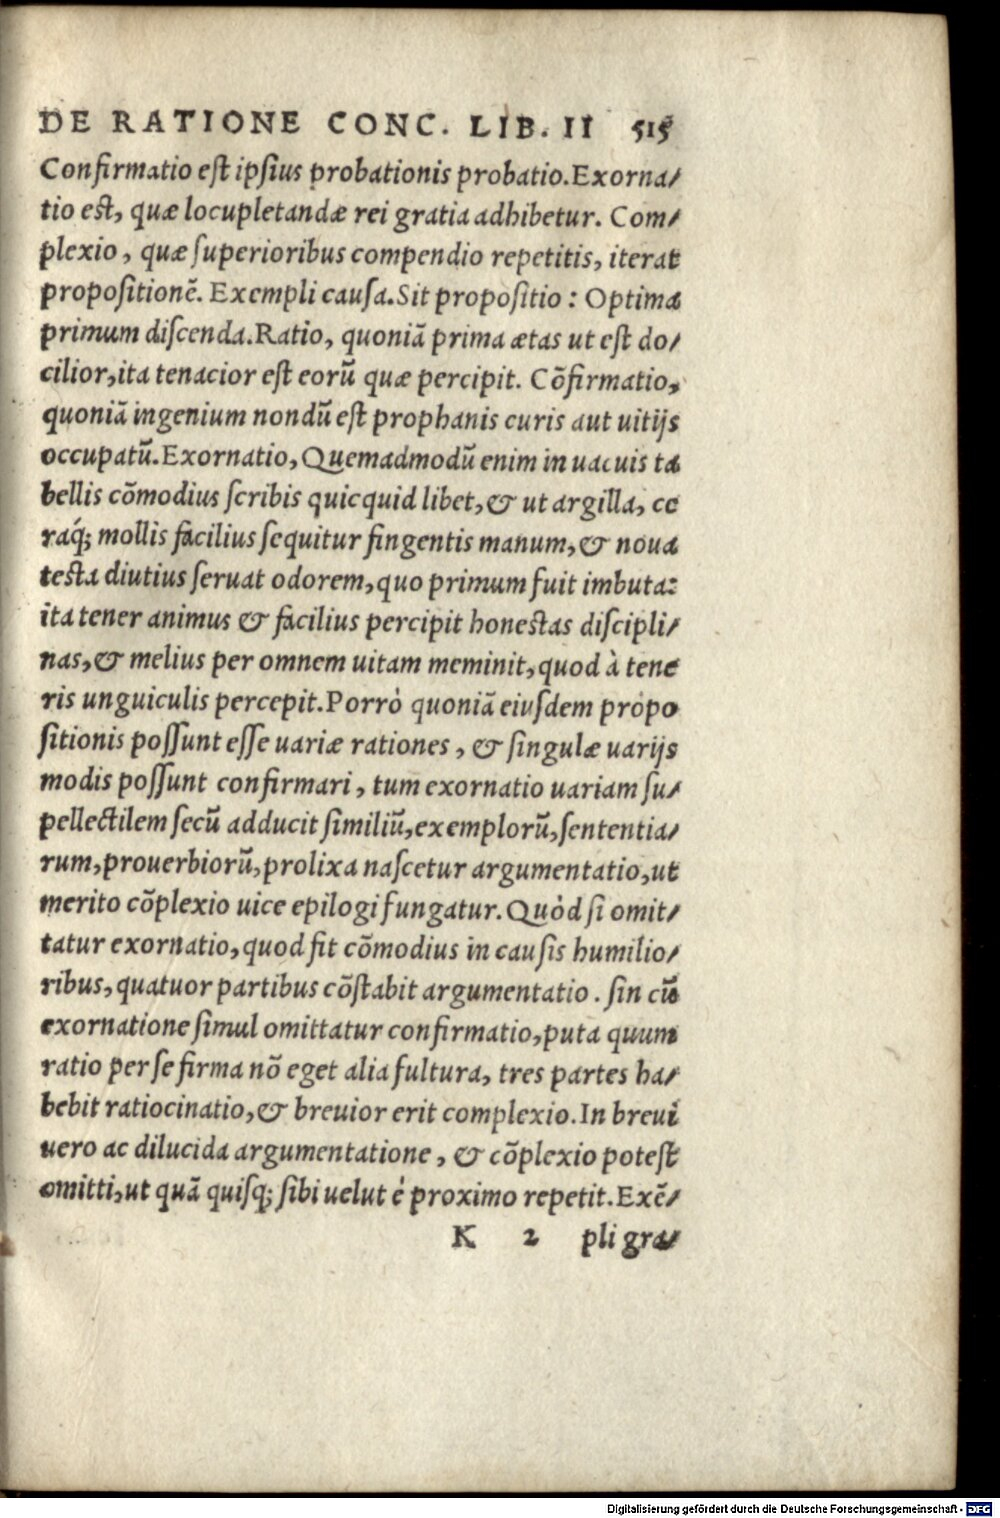 DE RATIONE CONC. LIB. II 515
Confirmatio est ipsius probationis probatio. Exorna/
tio est, quæ locupletandæ rei gratia adhibetur. Com/
plexio, quæ superioribus compendio repetitis, iterat
propositionẽ. Exempli causa. Sit propositio: Optima
primum discenda. Ratio, quoniã prima ætas ut est do/
cilior, ita tenacior est eorũ quæ percipit. Cõfirmatio,
quoniã ingenium nondũ est prophanis curis aut uitijs
occupatũ. Exornatio, Quemadmodũ enim in uacuis ta
bellis cõmodius scribis quicquid libet, & ut argilla, ce
raq́; mollis facilius sequitur fingentis manum, & noua
testa diutius seruat odorem, quo primum fuit imbuta:
ita tener animus & facilius percipit honestas discipli/
nas, & melius per omnem uitam meminit, quod à tene
ris unguiculis percepit. Porrò quoniã eiusdem propo
sitionis possunt esse uariæ rationes, & singulæ uarijs
modis possunt confirmari, tum exornatio uariam su/
pellectilem secũ adducit similiũ, exemplorũ, sententia/
rum, prouerbiorũ, prolixa nascetur argumentatio, ut
merito cõplexio uice epilogi fungatur. Quòd si omit/
tatur exornatio, quod fit cõmodius in causis humilio/
ribus, quatuor partibus cõstabit argumentatio. sin cũ
exornatione simul omittatur confirmatio, puta quum
ratio per se firma nõ eget alia fultura, tres partes ha/
bebit ratiocinatio, & breuior erit complexio. In breui
uero ac dilucida argumentatione, & cõplexio potest
omitti, ut quã quisq; sibi uelut è proximo repetit. Exẽ/
K 2 pli gra/
Digitalisierung gefördert durch die Deutsche Forschungsgemeinschaft - DFG